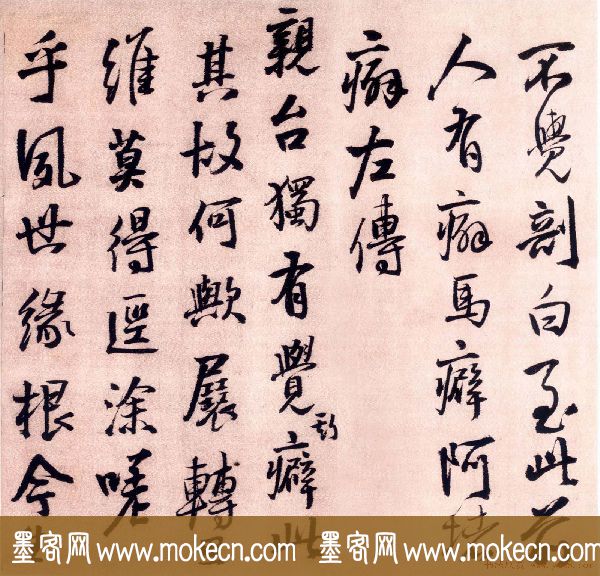 不覺剖白至此
人有癖馬癖阿堵
癖左傳
親台獨有覺斯癖此
其故何歟展轉
維莫得深嗟
乎夙世緣根今生
墨客网 www.mokecn.com 墨客网 www.mokecn.com